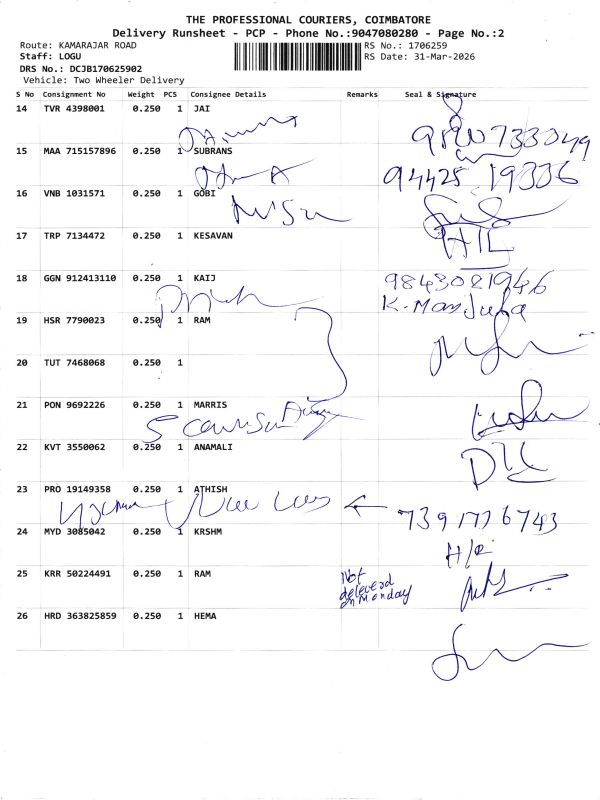 THE PROFESSIONAL COURIERS, COIMBATORE
Delivery Runsheet - PCP - Phone No.:9047080280 - Page No.:2
Route: KAMARAJAR ROAD RS No.: 1706259
Staff: LOGU RS Date: 31-Mar-2026
DRS No.: DCJB170625902
Vehicle: Two Wheeler Delivery
S No Consignment No Weight PCS Consignee Details Remarks Seal & Signature
14 TVR 4398001 0.250 1 JAI
15 MAA 715157896 0.250 1 SUBRANS
94425 19336
16 VNB 1031571 0.250 1 GOBI
17 TRP 7134472 0.250 1 KESAVAN
18 GGN 912413110 0.250 1 KAIJ
9843021946
K. Manjula
19 HSR 7790023 0.250 1 RAM
20 TUT 7468068 0.250 1
21 PON 9692226 0.250 1 MARRIS
22 KVT 3550062 0.250 1 ANAMALI
23 PRO 19149358 0.250 1 ATHISH
7391776743
24 MYD 3085042 0.250 1 KRSHM
25 KRR 50224491 0.250 1 RAM
Not
on Monday
26 HRD 363825859 0.250 1 HEMA